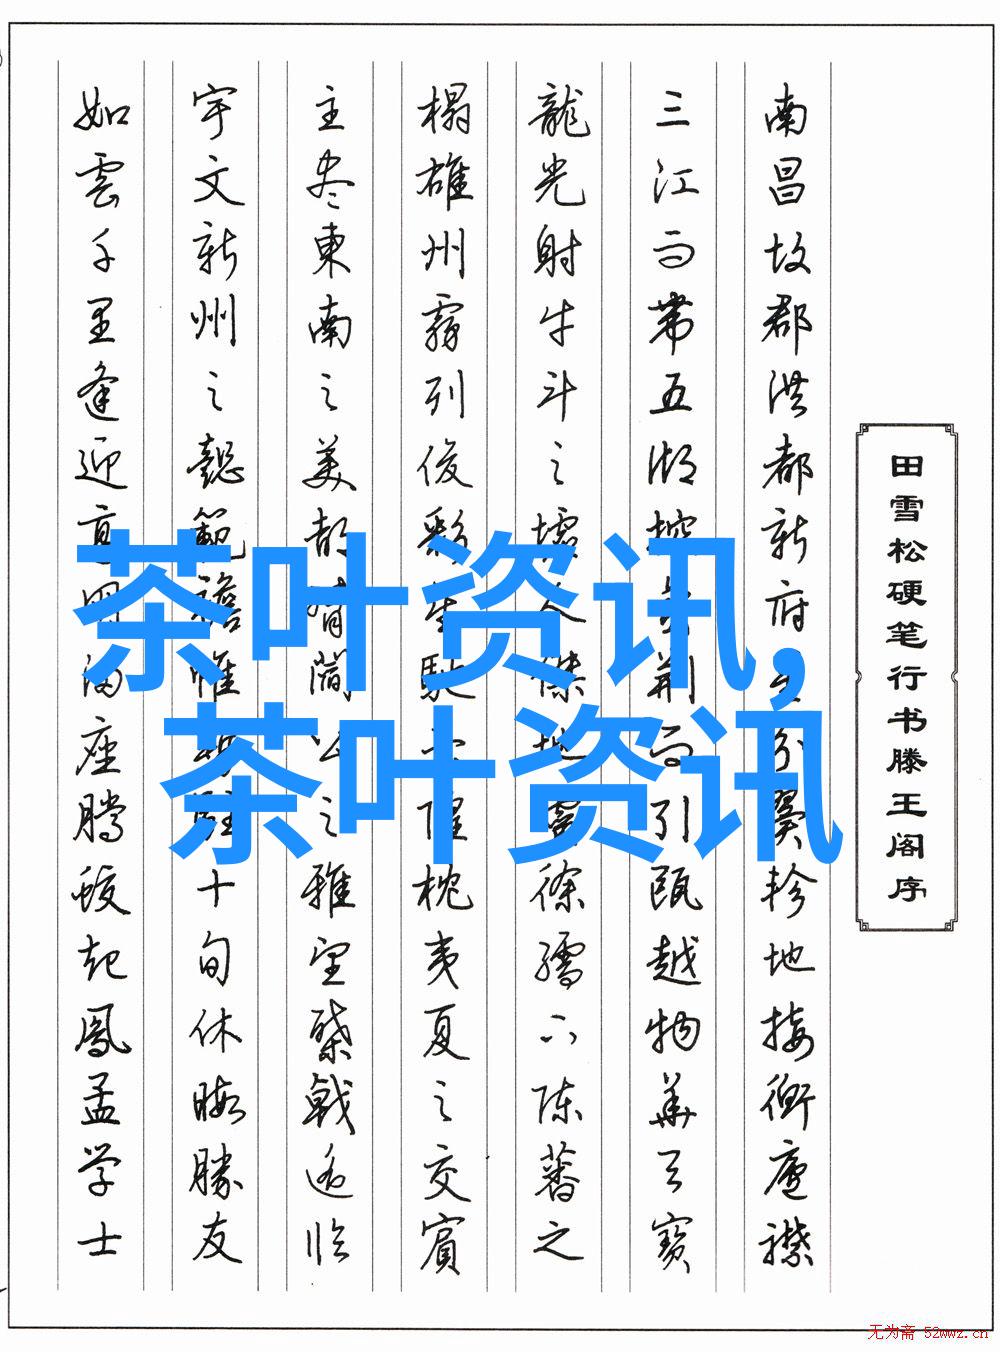 田雪松硬笔行书滕王阁序
南昌故郡洪都新府星分翼轸地接衡廬襟
三江而带五湖控蛮荆而引瓯越物華天寳
龍光射牛斗之墟人傑地靈徐孺下陈蕃之
榻雄州霧列俊彩星馳台隍枕夷夏之交賓
主尽東南之美都督閻公之雅望棨戟遥临
宇文新州之懿範襜帷暂駐十旬休暇勝友
如雲千里逢迎高朋满座騰蛟起鳳孟学士
茶叶资讯,
茶叶资讯
无为斋 52wwz.cn